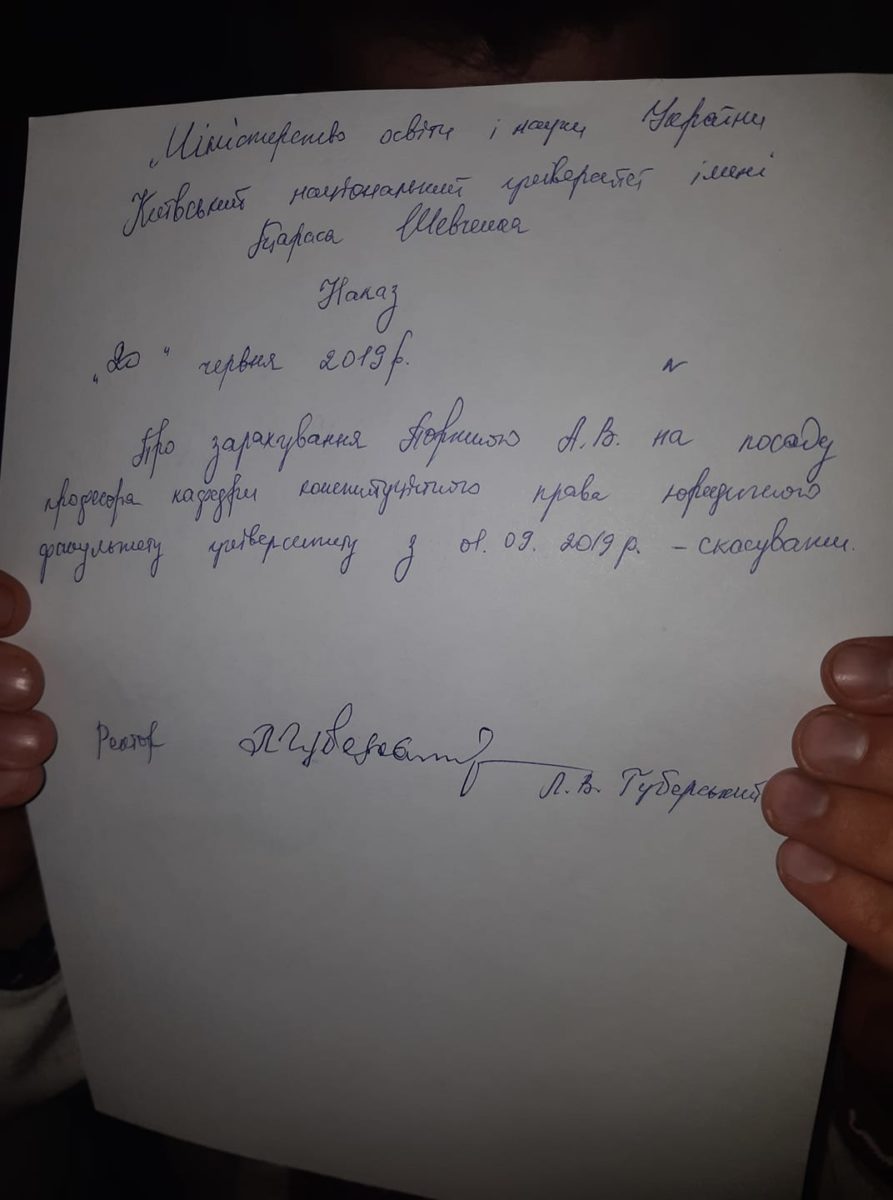 „Міністерство освіти і науки України
Київський національний університет імені
Тараса Шевченка
Наказ
„20" червня 2019 р. N
Про зарахування А.В. на посаду
професора кафедри конституційного права юридичного
факультету університету з 01.09.2019 р. – скасувати.
Ректор
Л.В. Губерський